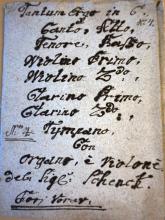 Tantum Ergo in G.
Nr. 4.
Canto, Alto,
Tenore, Basso,
Violino Primo,
Violino 2do,
Clarino Primo,
Clarino 2do,
Tympano,
Con
Organo, è Violone
del Sigl: Schenck.